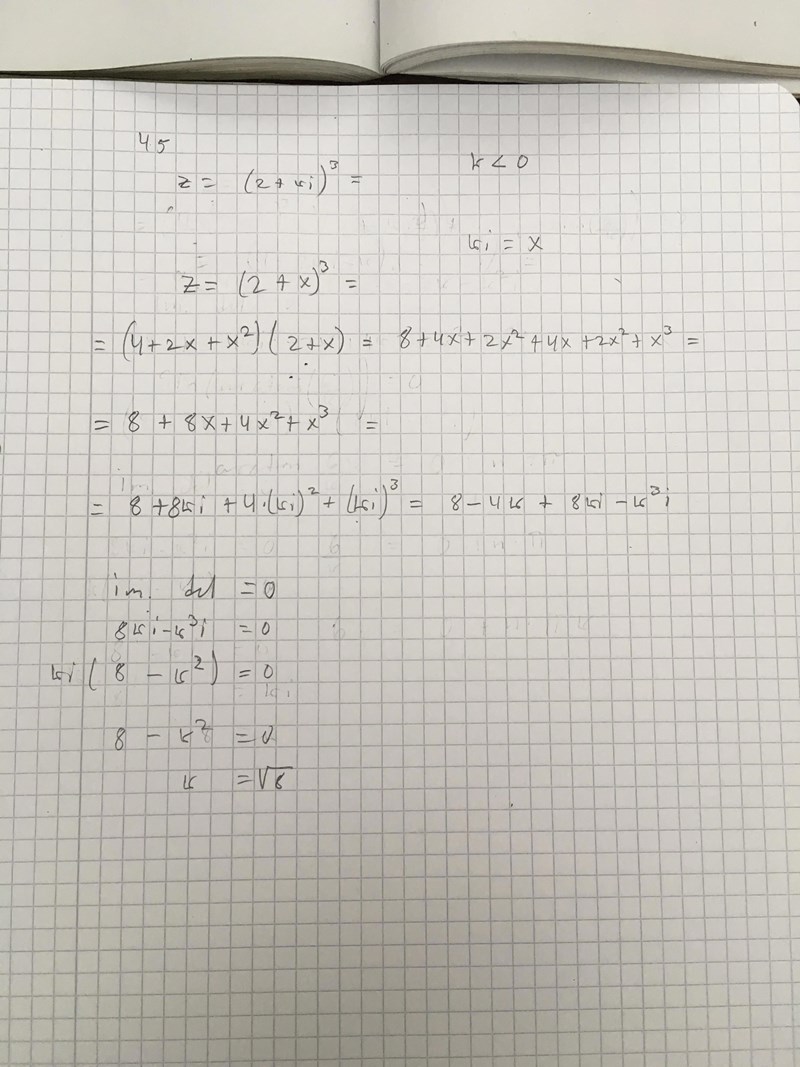 45
z = (2+ki)³ =
k < 0
ki = x
z = (2+x)³ =
= (4+2x+x²)(2+x) = 8+4x+2x²+4x+2x²+x³ =
= 8 + 8x+4x²+x³ =
= 8+8ki +4·(ki)²+(ki)³ = 8-4k + 8ki-k³i
im. del = 0
8ki-k³i = 0
ki(8 - k²) = 0
8 - k² = 0
k = √8